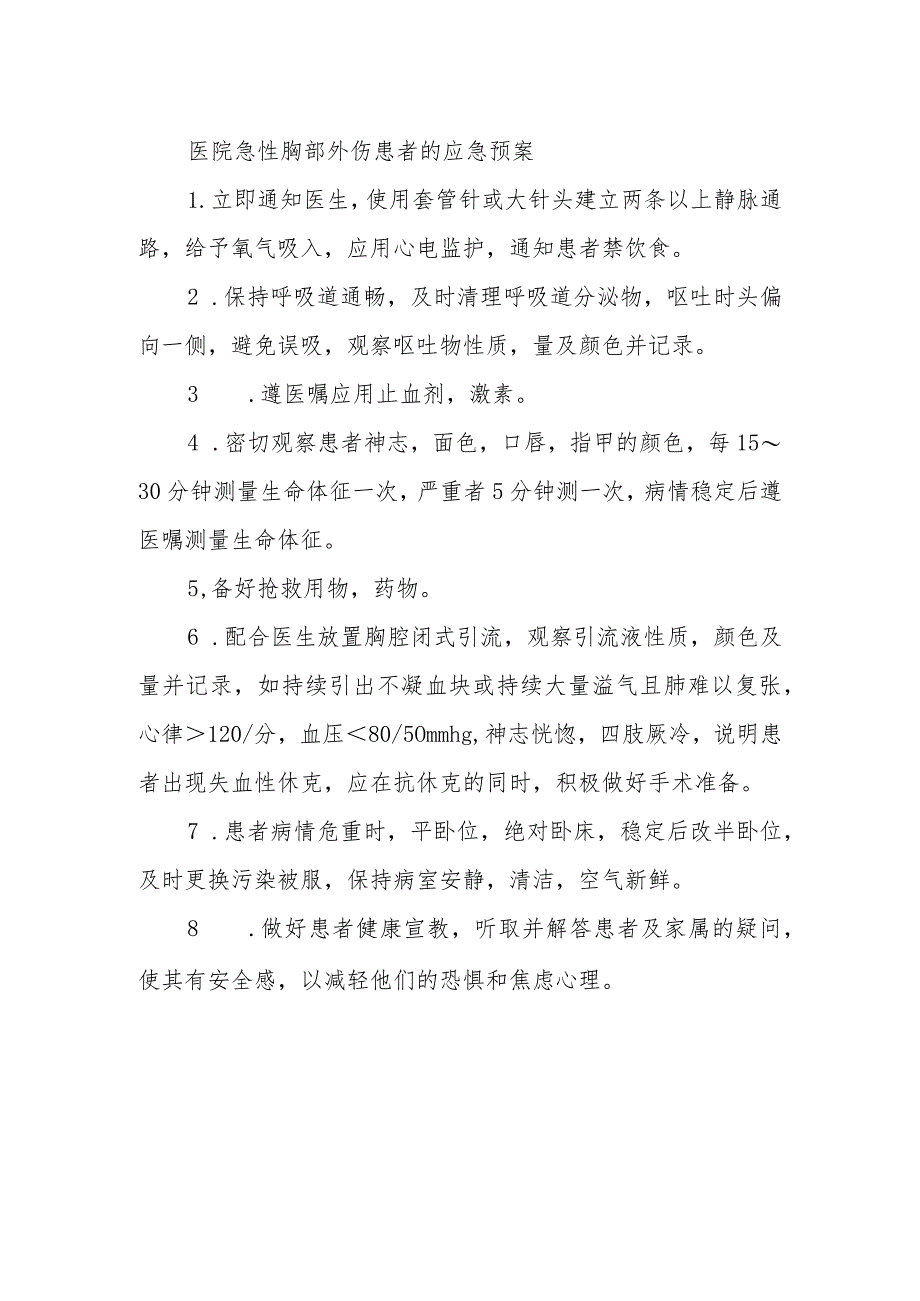 医院急性胸部外伤患者的应急预案
1.立即通知医生，使用套管针或大针头建立两条以上静脉通
路，给予氧气吸入，应用心电监护，通知患者禁饮食。
2 .保持呼吸道通畅，及时清理呼吸道分泌物，呕吐时头偏
向一侧，避免误吸，观察呕吐物性质，量及颜色并记录。
3 .遵医嘱应用止血剂，激素。
4 .密切观察患者神志，面色，口唇，指甲的颜色，每 15～
30分钟测量生命体征一次，严重者5分钟测一次，病情稳定后遵
医嘱测量生命体征。
5,备好抢救用物，药物。
6 .配合医生放置胸腔闭式引流，观察引流液性质，颜色及
量并记录，如持续引出不凝血块或持续大量溢气且肺难以复张，
心律＞120/分，血压＜80/5Ommhg,神志恍惚，四肢厥冷，说明患
者出现失血性休克，应在抗休克的同时，积极做好手术准备。
7 .患者病情危重时，平卧位，绝对卧床，稳定后改半卧位，
及时更换污染被服，保持病室安静，清洁，空气新鲜。
8 .做好患者健康宣教，听取并解答患者及家属的疑问，
使其有安全感，以减轻他们的恐惧和焦虑心理。